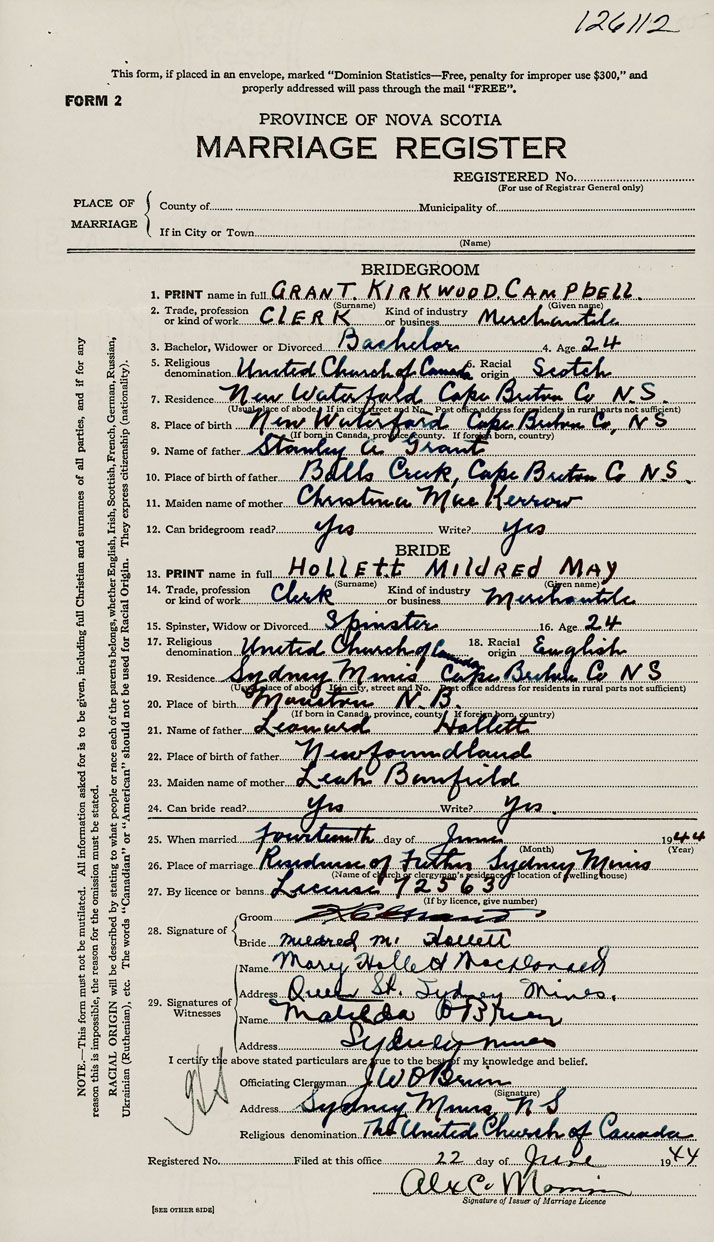 126112
This form, if placed in an envelope, marked "Dominion Statistics—Free, penalty for improper use $300," and
properly addressed will pass through the mail "FREE".
FORM 2
PROVINCE OF NOVA SCOTIA
MARRIAGE REGISTER
REGISTERED No.
(For use of Registrar General only)
PLACE OF MARRIAGE
County of Municipality of
If in City or Town
(Name)
BRIDEGROOM
1. PRINT name in full GRANT. KIRKWOOD. CAMPbELL.
(Surname) (Given name)
2. Trade, profession or kind of work CLERK Kind of industry or business Merchantile
3. Bachelor, Widower or Divorced Bachelor 4. Age 24
5. Religious denomination United Church of Canada 6. Racial origin Scotch
7. Residence New Waterford Cape Breton Co N.S.
(Usual place of abode. If in city, street and No. Post office address for residents in rural parts not sufficient)
8. Place of birth New Waterford Cape Breton Co, NS
(If born in Canada, province, county. If foreign born, country)
9. Name of father Stanley A Grant
10. Place of birth of father Balls Creek, Cape Breton Co N.S.
11. Maiden name of mother Christina MacKerrow
12. Can bridegroom read? Yes Write? Yes
BRIDE
13. PRINT name in full HOLLEtt MILDRED MAY
(Surname) (Given name)
14. Trade, profession or kind of work Clerk Kind of industry or business Merchantile
15. Spinster, Widow or Divorced Spinster 16. Age 24
17. Religious denomination United Church of Canada 18. Racial origin English
19. Residence Sydney Mines Cape Breton Co NS
(Usual place of abode. If in city, street and No. Post office address for residents in rural parts not sufficient)
20. Place of birth N.B.
(If born in Canada, province, county. If foreign born, country)
21. Name of father Leonard Hollett
22. Place of birth of father Newfoundland
23. Maiden name of mother Leah Banfield
24. Can bride read? Yes Write? Yes.
25. When married Fourteenth day of June 1944
(Month) (Year)
26. Place of marriage Residence of Father Sydney Mines
(Name of church or clergyman's residence or location of dwelling house)
27. By licence or banns License 72563
(If by licence, give number)
28. Signature of
Groom
Bride Mildred M. Hollett
29. Signatures of Witnesses
Name Mary Hollett MacDonald
Address Queen St. Sydney Mines.
Name Matilda O'Brien
Address Sydney Mines
I certify the above stated particulars are true to the best of my knowledge and belief.
Officiating Clergyman J W O'Brien
(Signature)
Address Sydney Mines, N S
Religious denomination The United Church of Canada
Registered No. Filed at this office 22 day of June 1944
Alex C.
Signature of Issuer of Marriage Licence
[SEE OTHER SIDE]
NOTE.—This form must not be mutilated. All information asked for is to be given, including full Christian and surnames of all parties, and if for any
reason this is impossible, the reason for the omission must be stated.
RACIAL ORIGIN will be described by stating to what people or race each of the parents belongs, whether English, Irish, Scottish, French, German, Russian,
Ukrainian (Ruthenian), etc. The words "Canadian" or "American" should not be used for Racial Origin. They express citizenship (nationality).